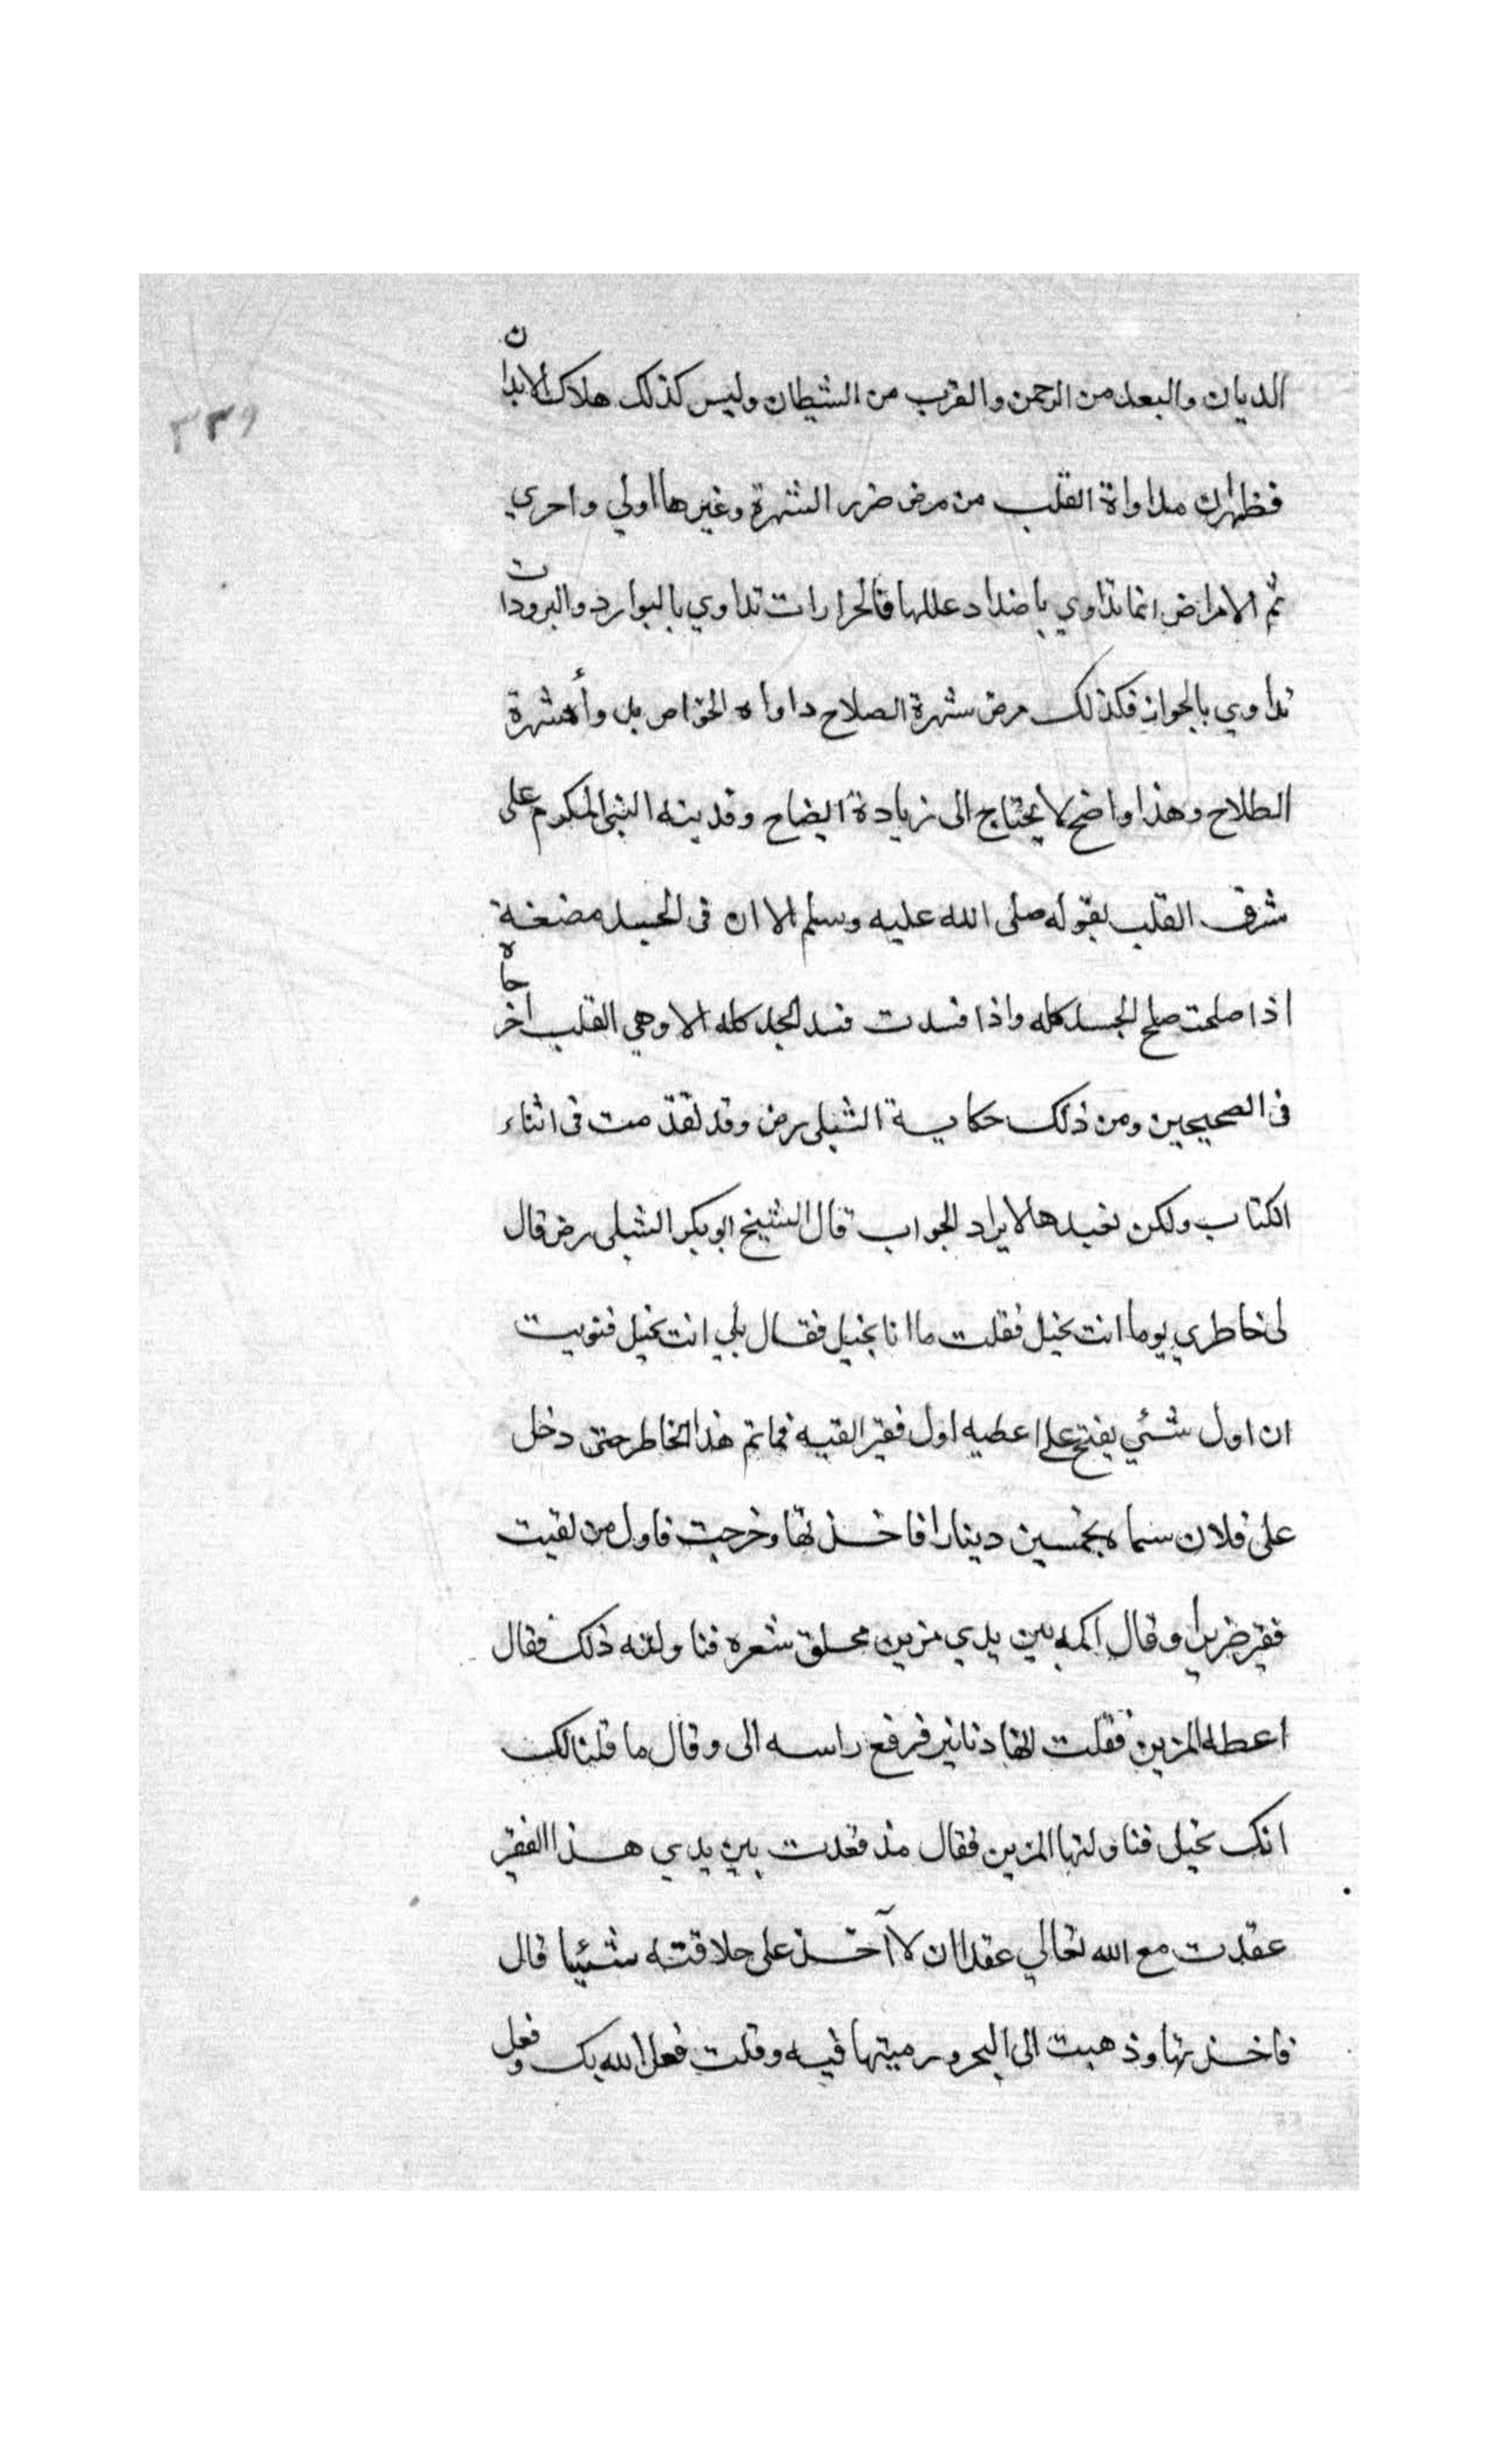 الديان والبعد من الرحمن والقرب من الشيطان وليس كذلك هلاك الابدان
فظهر ان مداواة القلب من مرض ضرر الشهرة وغيرها اولي واحري
ثم الامراض انما تداوي باضداد عللها فالحرارات تداوي بالبوارد والبرودات
تداوي بالحوار فكذلك مرض شهرة الصلاح داواه الخواص بدواء شهرة
الطلاح وهذا واضح لا يحتاج الى زيادة ايضاح وقد نبه النبي المكرم على
شرف القلب بقوله صلى الله عليه وسلم الا ان فى الجسد مضغة
اذا صلحت صلح الجسد كله واذا فسدت فسد الجسد كله الا وهي القلب اخرجاه
فى الصحيحين ومن ذلك حكاية الشبلى رض وقد تقدمت فى اثناء
الكتاب ولكن نعيدها لايراد الجواب قال الشيخ ابو بكر الشبلى رض قال
لى خاطري يوما انت بخيل فقلت ما انا بخيل فقال بلي انت بخيل فنويت
ان اول شئي يفتح على اعطيه اول فقير القيه فما تم هذا الخاطر حتى دخل
على فلان سماه بخمسين دينارا فاخذتها وخرجت فاول من لقيت
فقير ضريرا وقال اكمه بين يدي مزين محلق شعره فناولته ذلك فقال
اعطه المزين فقلت انها دنانير فرفع راسه الى وقال ما قلنا لك
انك بخيل فناولتها المزين فقال مذ قعدت بين يدي هذا الفقير
عقدت مع الله تعالي عقدا ان لا آخذ على حلاقته شئيا قال
فاخذتها وذهبت الى البحر ورميتها فيه وقلت فعل الله بك وفعل
٣٣٩